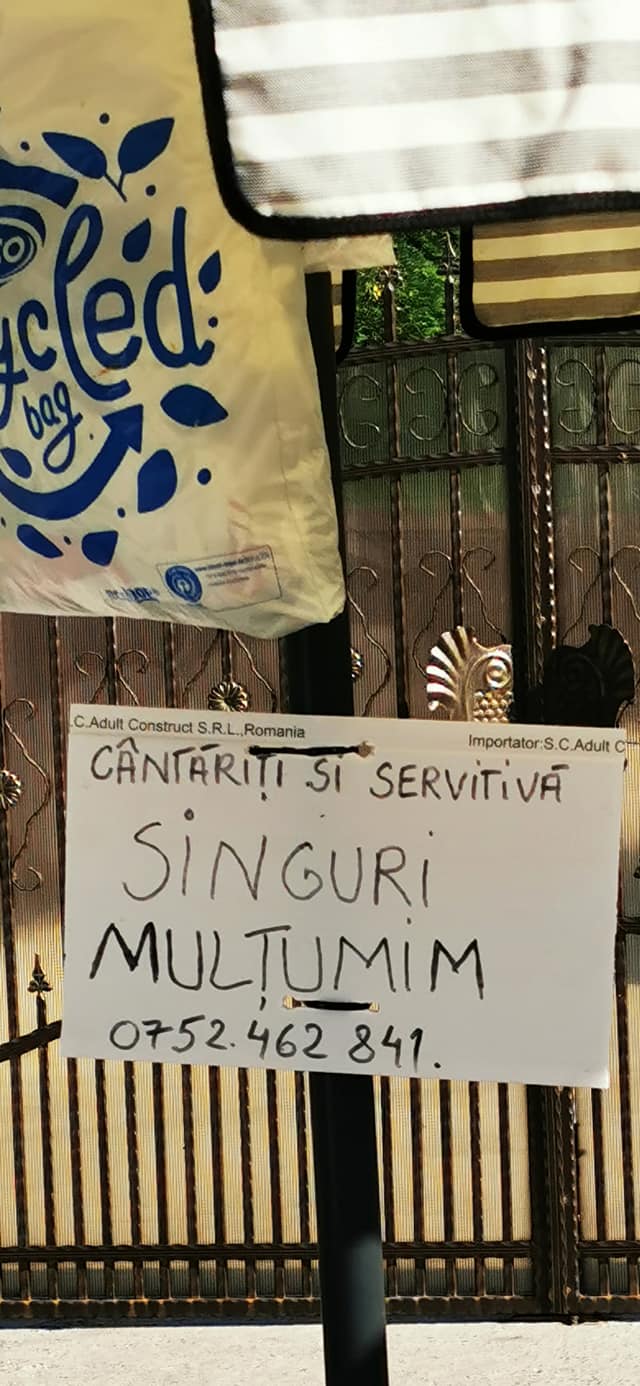 ycled
bag
C.Adult Construct S.R.L.,Romania
Importator:S.C.Adult C
CÂNTĂRIȚI SI SERVITIVĂ
SINGURI
MULȚUMIM
0752.462 841.